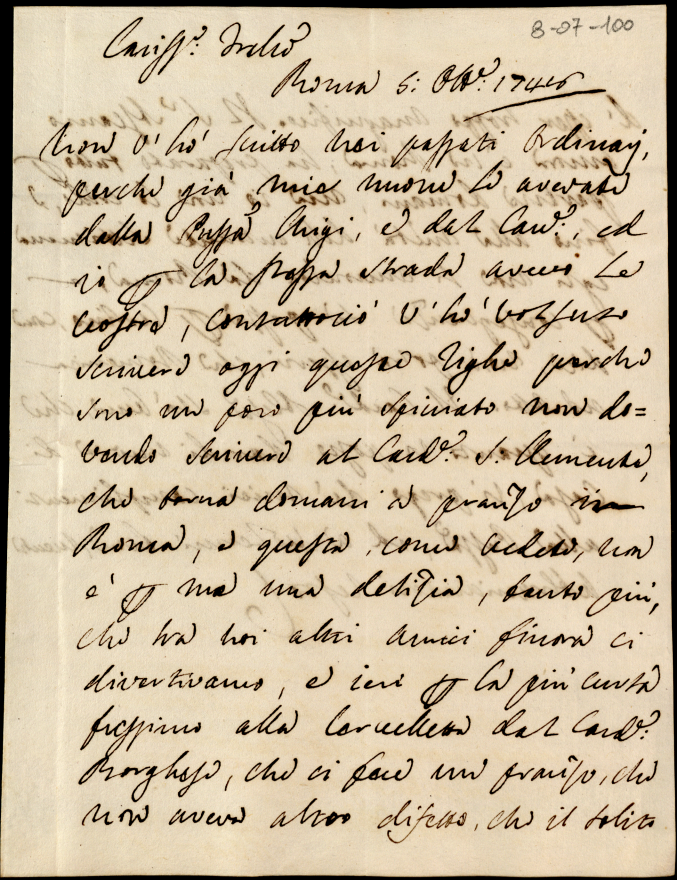 8-07-100
Cariss.º Frēllo
Roma 5: Ott.e: 1746
Non v'hò scritto nei passati Ordinarj,
perche già mie nuove le avevate
dalla Ppssa Chigi, e dal Card.e, ed
io p la stessa strada avevo le
vostre, contuttociò v'hò volsuto
scrivere oggi queste righe perche
sono un poco più spicciato non do=
vendo scrivere al Card.e S. Clemente,
che torna domani à pranzo in
Roma, e questa, come vedete, non
è p me una delizia, tanto più,
che tra noi altri amici finora ci
divertivamo, e ieri p la più curta
fussimo alla Cervelletta dal Card.e
Borghese, che ci fece un pranzo, che
non aveva altro difetto, che il solito